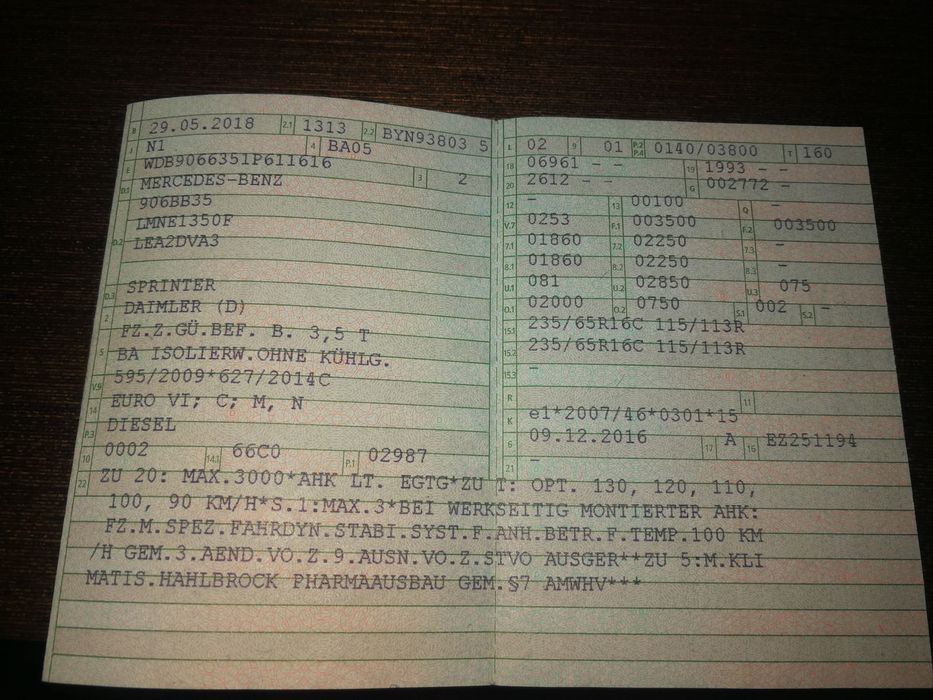 B 29.05.2018 2.1 1313 2.2 BYN93803 5
J N1 4 BA05
E WDB9066351P611616 3 2
D.1 MERCEDES-BENZ
906BB35
LMNE1350F
D.2 LEA2DVA3
D.3 SPRINTER
2 DAIMLER (D)
FZ.Z.GÜ.BEF. B. 3,5 T
5 BA ISOLIERW.OHNE KÜHLG.
V.9 595/2009*627/2014C
14 EURO VI; C; M, N
P.3 DIESEL
10 0002 14.1 66C0 P.1 02987
L 02 9 01 P.2 P.4 0140/03800 T 160
18 06961 - - 19 1993 - -
20 2612 - - G 002772 -
12 - 13 00100 Q -
V.7 0253 F.1 003500 F.2 003500
7.1 01860 7.2 02250 7.3 -
8.1 01860 8.2 02250 8.3 -
U.1 081 U.2 02850 U.3 075
O.1 02000 O.2 0750 S.1 002 S.2 -
15.1 235/65R16C 115/113R
15.2 235/65R16C 115/113R
15.3 -
R 11
K e1*2007/46*0301*15
6 09.12.2016 17 A 16 EZ251194
21 -
22 ZU 20: MAX.3000*AHK LT. EGTG*ZU T: OPT. 130, 120, 110,
100, 90 KM/H*S.1:MAX.3*BEI WERKSEITIG MONTIERTER AHK:
FZ.M.SPEZ.FAHRDYN.STABI.SYST.F.ANH.BETR.F.TEMP.100 KM
/H GEM.3.AEND.VO.Z.9.AUSN.VO.Z.STVO AUSGER**ZU 5:M.KLI
MATIS.HAHLBROCK PHARMAAUSBAU GEM.§7 AMWHV***